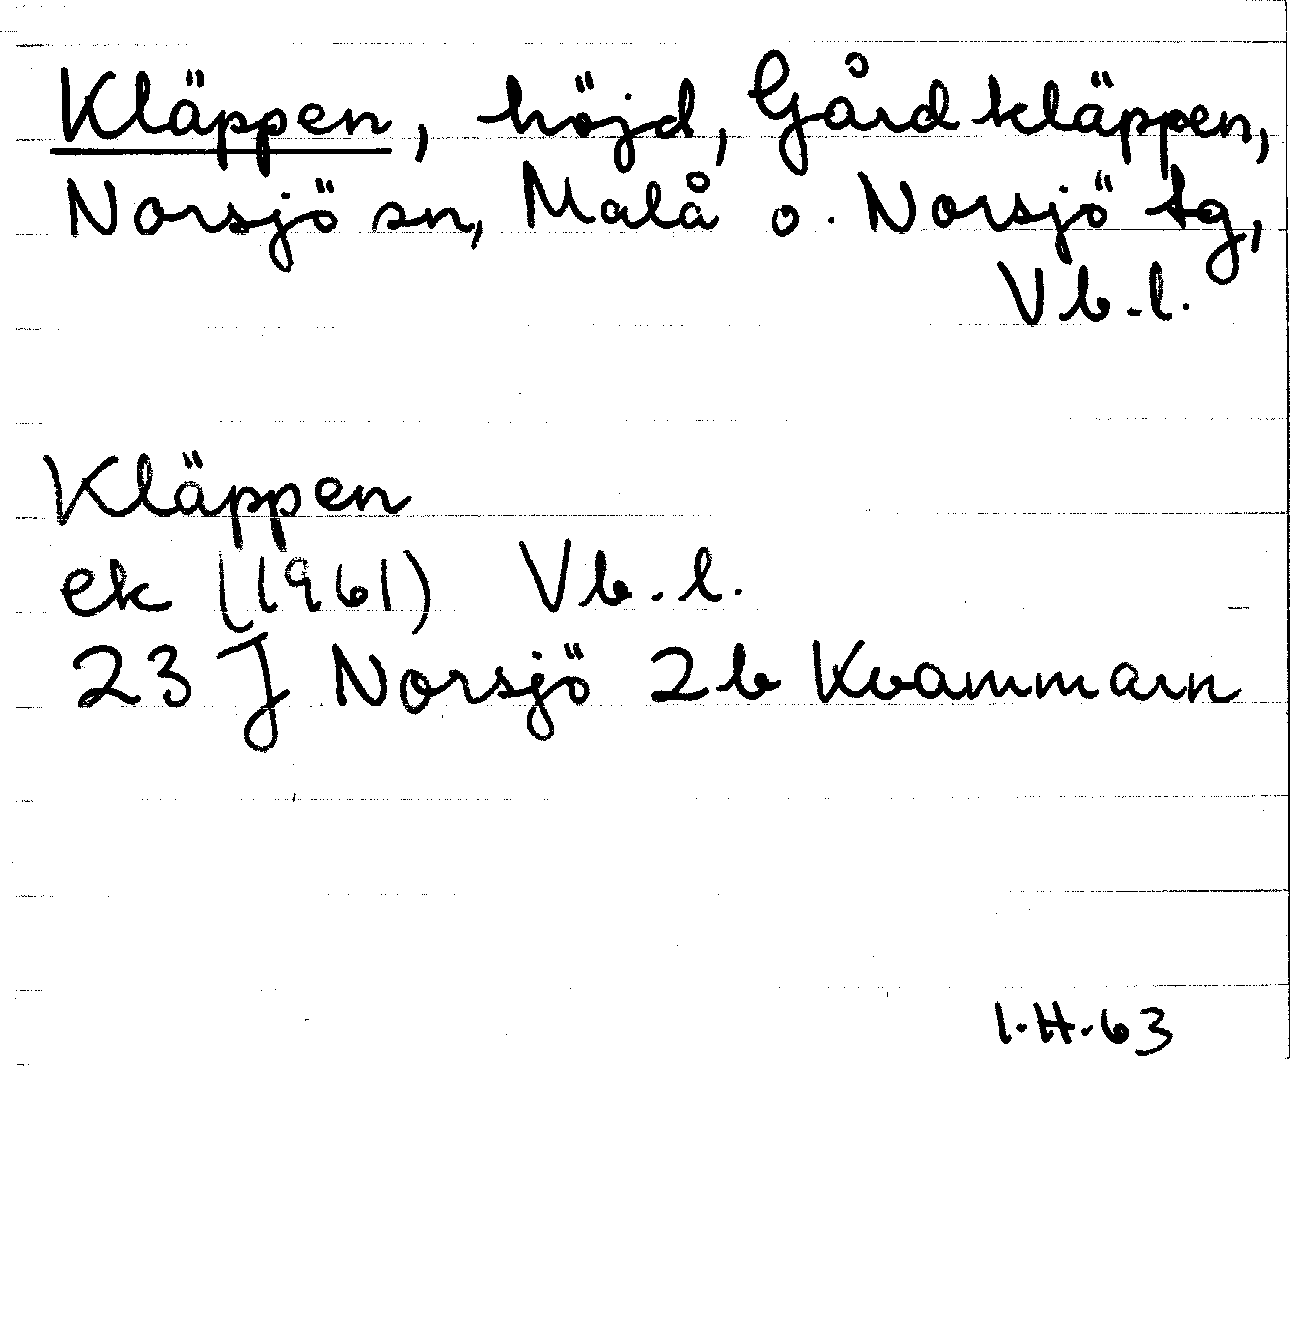 Kläppen, höjd, Gårdkläppen,
Norsjö sn, Malå o. Norsjö tg,
Vb.l.
Kläppen
ek (1961) Vb.l.
23 J Norsjö 2b Kvammarn
I.H.63